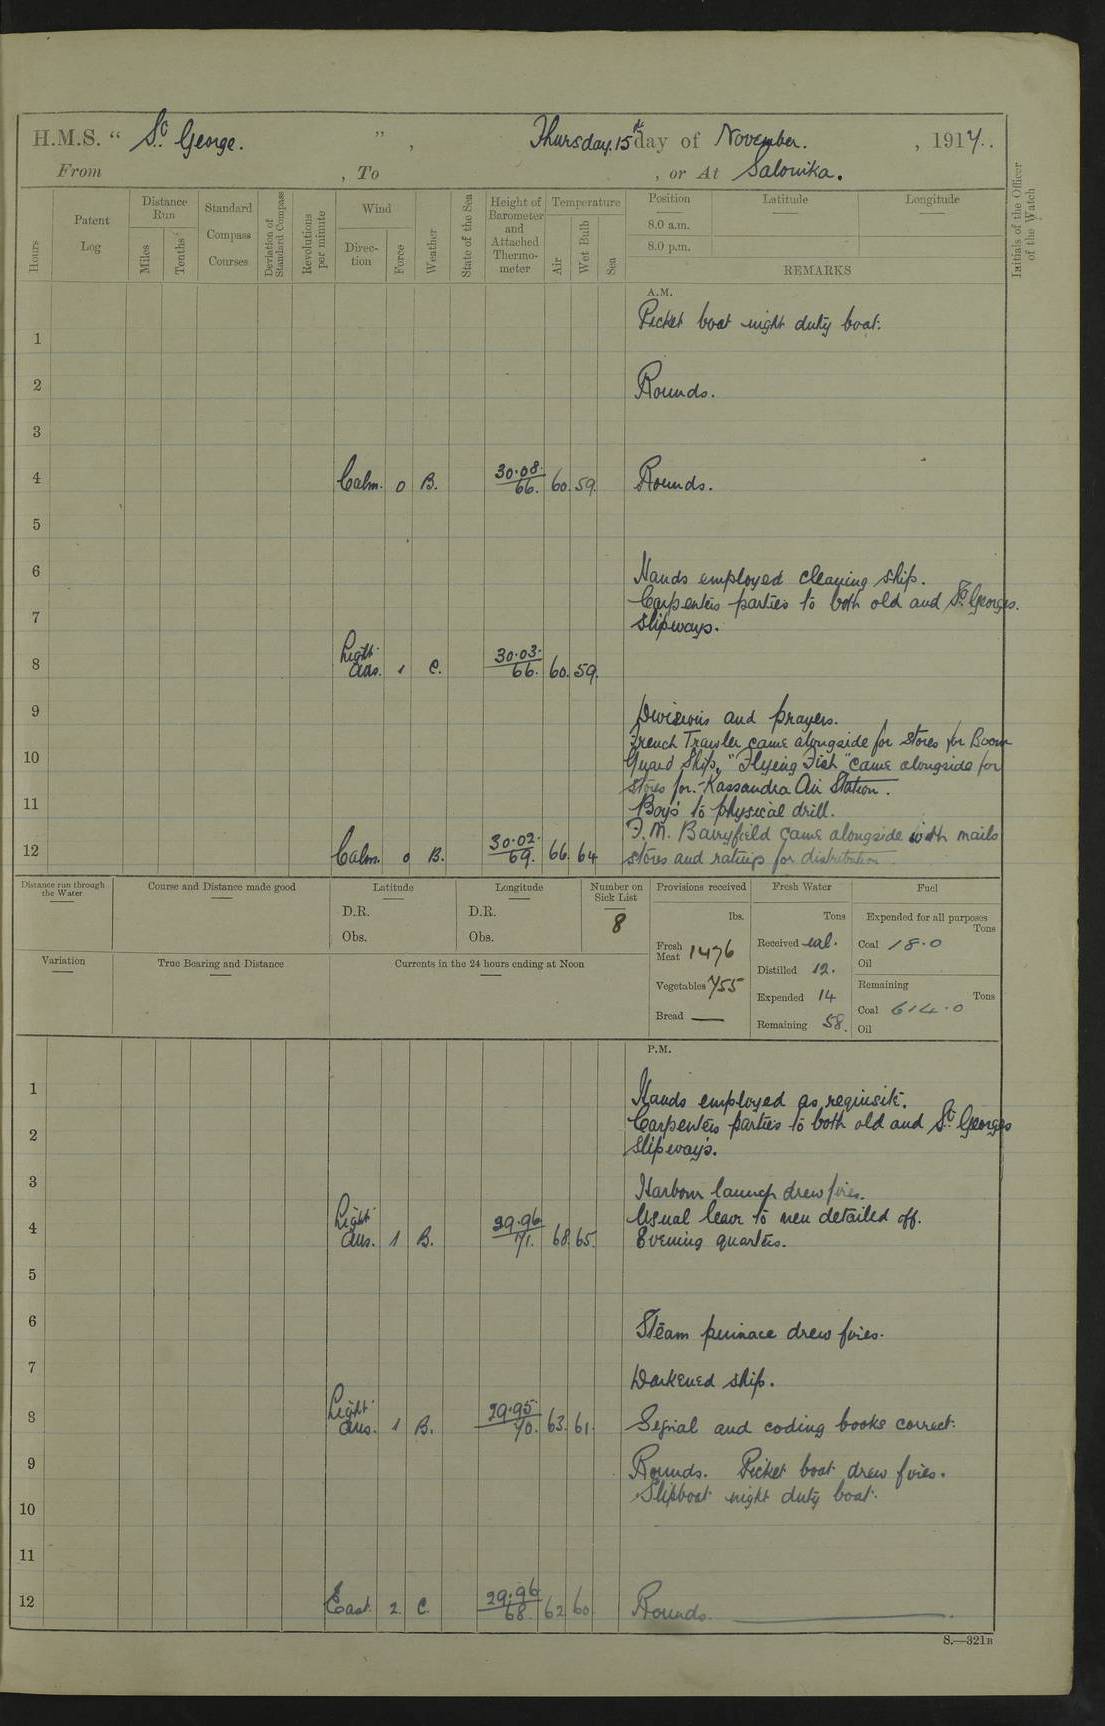 H.M.S. “ St. George. ” , Thursday. 15th day of November. , 1917.
From , To , or At Salonika.
Hours
Patent Log
Distance Run
Miles
Tenths
Standard Compass Courses
Deviation of Standard Compass
Revolutions per minute
Wind
Direc-tion
Force
Weather
State of the Sea
Height of Barometer and Attached Thermo-meter
Temperature
Air
Wet Bulb
Sea
Position Latitude Longitude
8.0 a.m.
8.0 p.m.
REMARKS
Initials of the Officer of the Watch
A.M.
Picket boat night duty boat.
1
2 Rounds.
3
4 Calm. 0 B. 30.08. 66. 60. 59. Rounds.
5
6 Hands employed cleaning ship.
Carpenters parties to both old and St. Georges.
7 slipways.
8 Light airs. 1 C. 30.03. 66. 60. 59.
9 Divisions and prayers.
French Trawler came alongside for stores for Boom
10 Guard Ship, "Flyeing Fish" came alongside for
stores for.- Kassandra Air Station.
11 Boy's to physical drill.
F.M. Barryfield came alongside with mails
12 Calm. 0 B. 30.02. 69. 66. 64 stores and ratings for distribution
Distance run through the Water
Course and Distance made good
Latitude
D.R.
Obs.
Longitude
D.R.
Obs.
Number on Sick List
8
Provisions received
lbs.
Fresh Meat 1476
Vegetables 755
Bread —
Fresh Water
Tons
Received
Distilled 12.
Expended 14
Remaining 58.
Fuel
Expended for all purposes
Tons
Coal 18.0
Oil
Remaining
Tons
Coal 614.0
Oil
Variation
True Bearing and Distance
Currents in the 24 hours ending at Noon
P.M.
1 Hands employed as requisite.
Carpenters parties to both old and St. Georges
2 slipway's.
3 Harbour launch drew fires.
Usual leave to men detailed off.
4 Light airs. 1 B. 29.96 71. 68. 65. Evening quarters.
5
6 Steam pinnace drew fires.
7 Darkened ship.
8 Light airs. 1 B. 29.95 70. 63. 61. Signal and coding books correct.
9 Rounds. Picket boat drew fires.
Slipboat night duty boat.
10
11
12 East. 2. C. 29.96 68. 62 60 Rounds.
S.—321B